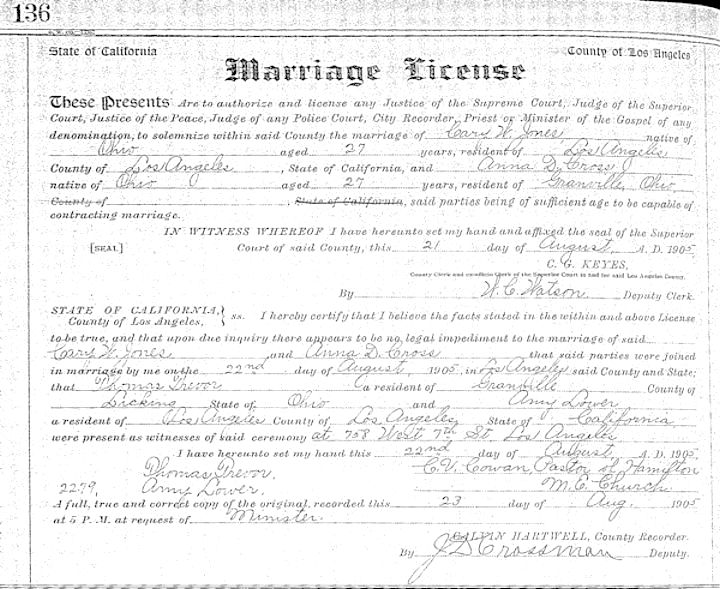 136
State of California County of Los Angeles
Marriage License
These Presents Are to authorize and license any Justice of the Supreme Court, Judge of the Superior
Court, Justice of the Peace, Judge of any Police Court, City Recorder, Priest or Minister of the Gospel of any
denomination, to solemnize within said County the marriage of Cary W. Jones native of
Ohio aged 27 years, resident of Los Angeles
County of Los Angeles, State of California, and Anna D. Cross
native of Ohio aged 27 years, resident of Granville, Ohio,
County of , State of California, said parties being of sufficient age to be capable of
contracting marriage.
IN WITNESS WHEREOF I have hereunto set my hand and affixed the seal of the Superior
[SEAL] Court of said County, this 21 day of August, A. D. 1905
C. G. KEYES,
County Clerk and ex-officio Clerk of the Superior Court in and for said Los Angeles County.
By W. C. Watson Deputy Clerk.
STATE OF CALIFORNIA, } ss. I hereby certify that I believe the facts stated in the within and above License
County of Los Angeles,
to be true, and that upon due inquiry there appears to be no legal impediment to the marriage of said
Cary W. Jones and Anna D. Cross that said parties were joined
in marriage by me on the 22nd day of August, 1905, in Los Angeles said County and State;
that Thomas Trevor a resident of Granville County of
Licking State of Ohio and Amy Lower
a resident of Los Angeles County of Los Angeles, State of California
were present as witnesses of said ceremony at 758 West 7th St. Los Angeles
I have hereunto set my hand this 22nd day of August, A. D. 1905,
Thomas Trevor, C. V. Cowan Pastor of Hampton
2279, Amy Lower, M. E. Church
A full, true and correct copy of the original, recorded this 23 day of Aug. 1905
at 5 P. M. at request of Minister.
CALVIN HARTWELL, County Recorder.
By J D Crossman Deputy.